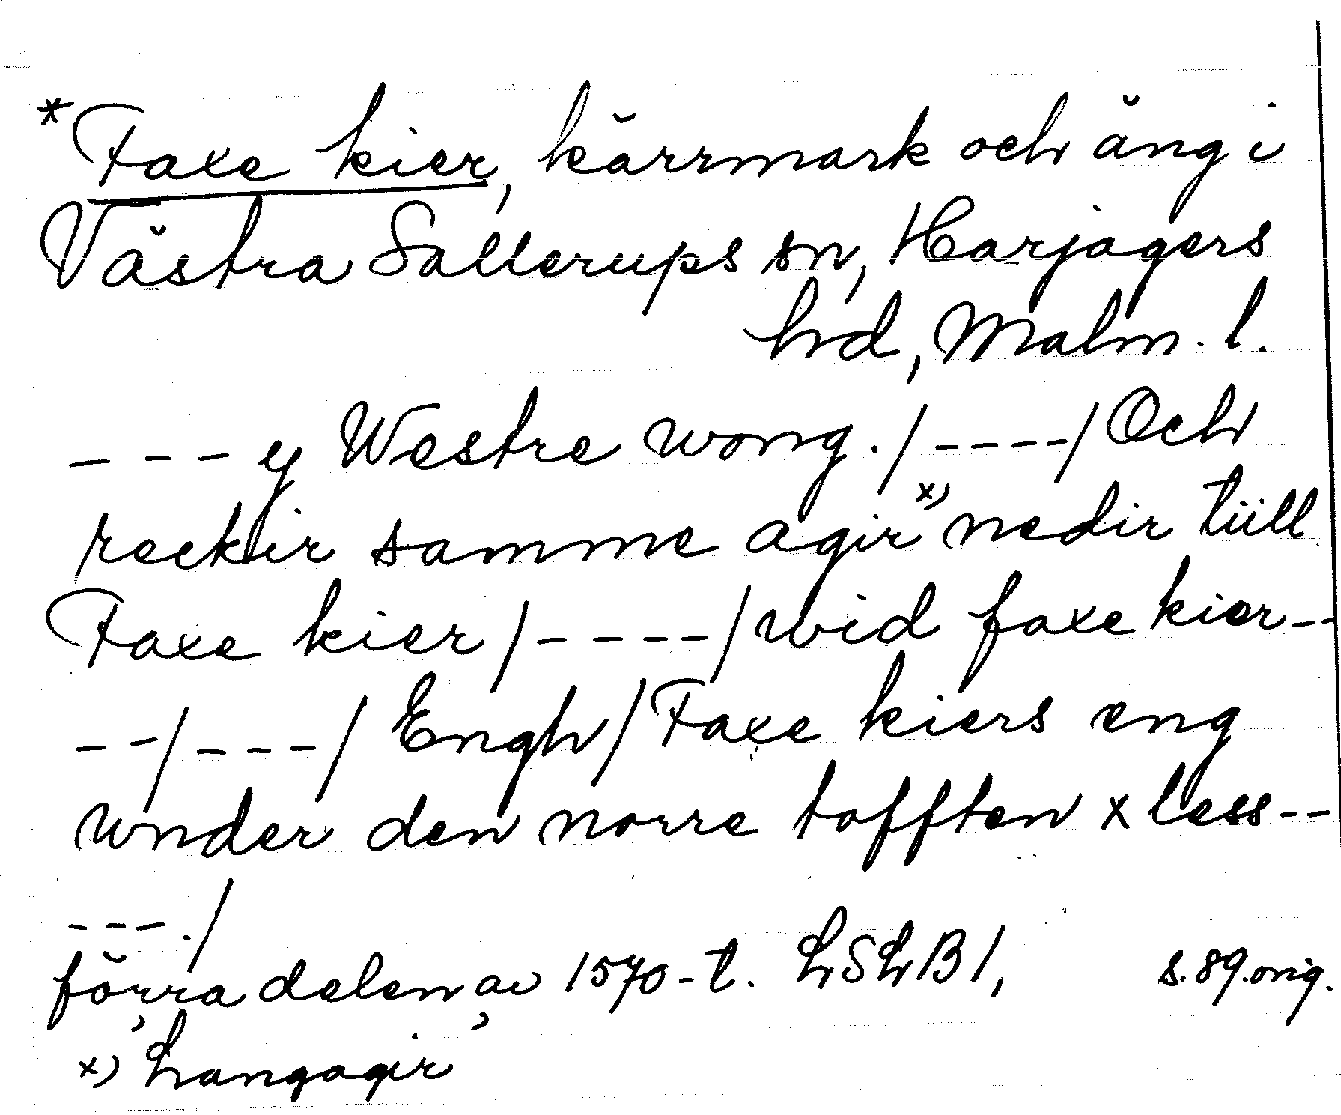 * Faxe kier, kärrmark och äng i
Västra Sallerups sn, Harjagers
hrd, Malm. l.
- - - y Westre wong. / - - - - / Och
reckir samme agir x) nedir tiill
Faxe kier / - - - - / wid faxe kier - -
- - / - - - / Engh / Faxe kiers eng
wnder den norre tofften x less - -
- - - . /
förra delen av 1570-t. LSLB 1, s. 89. orig.
x) Langagir